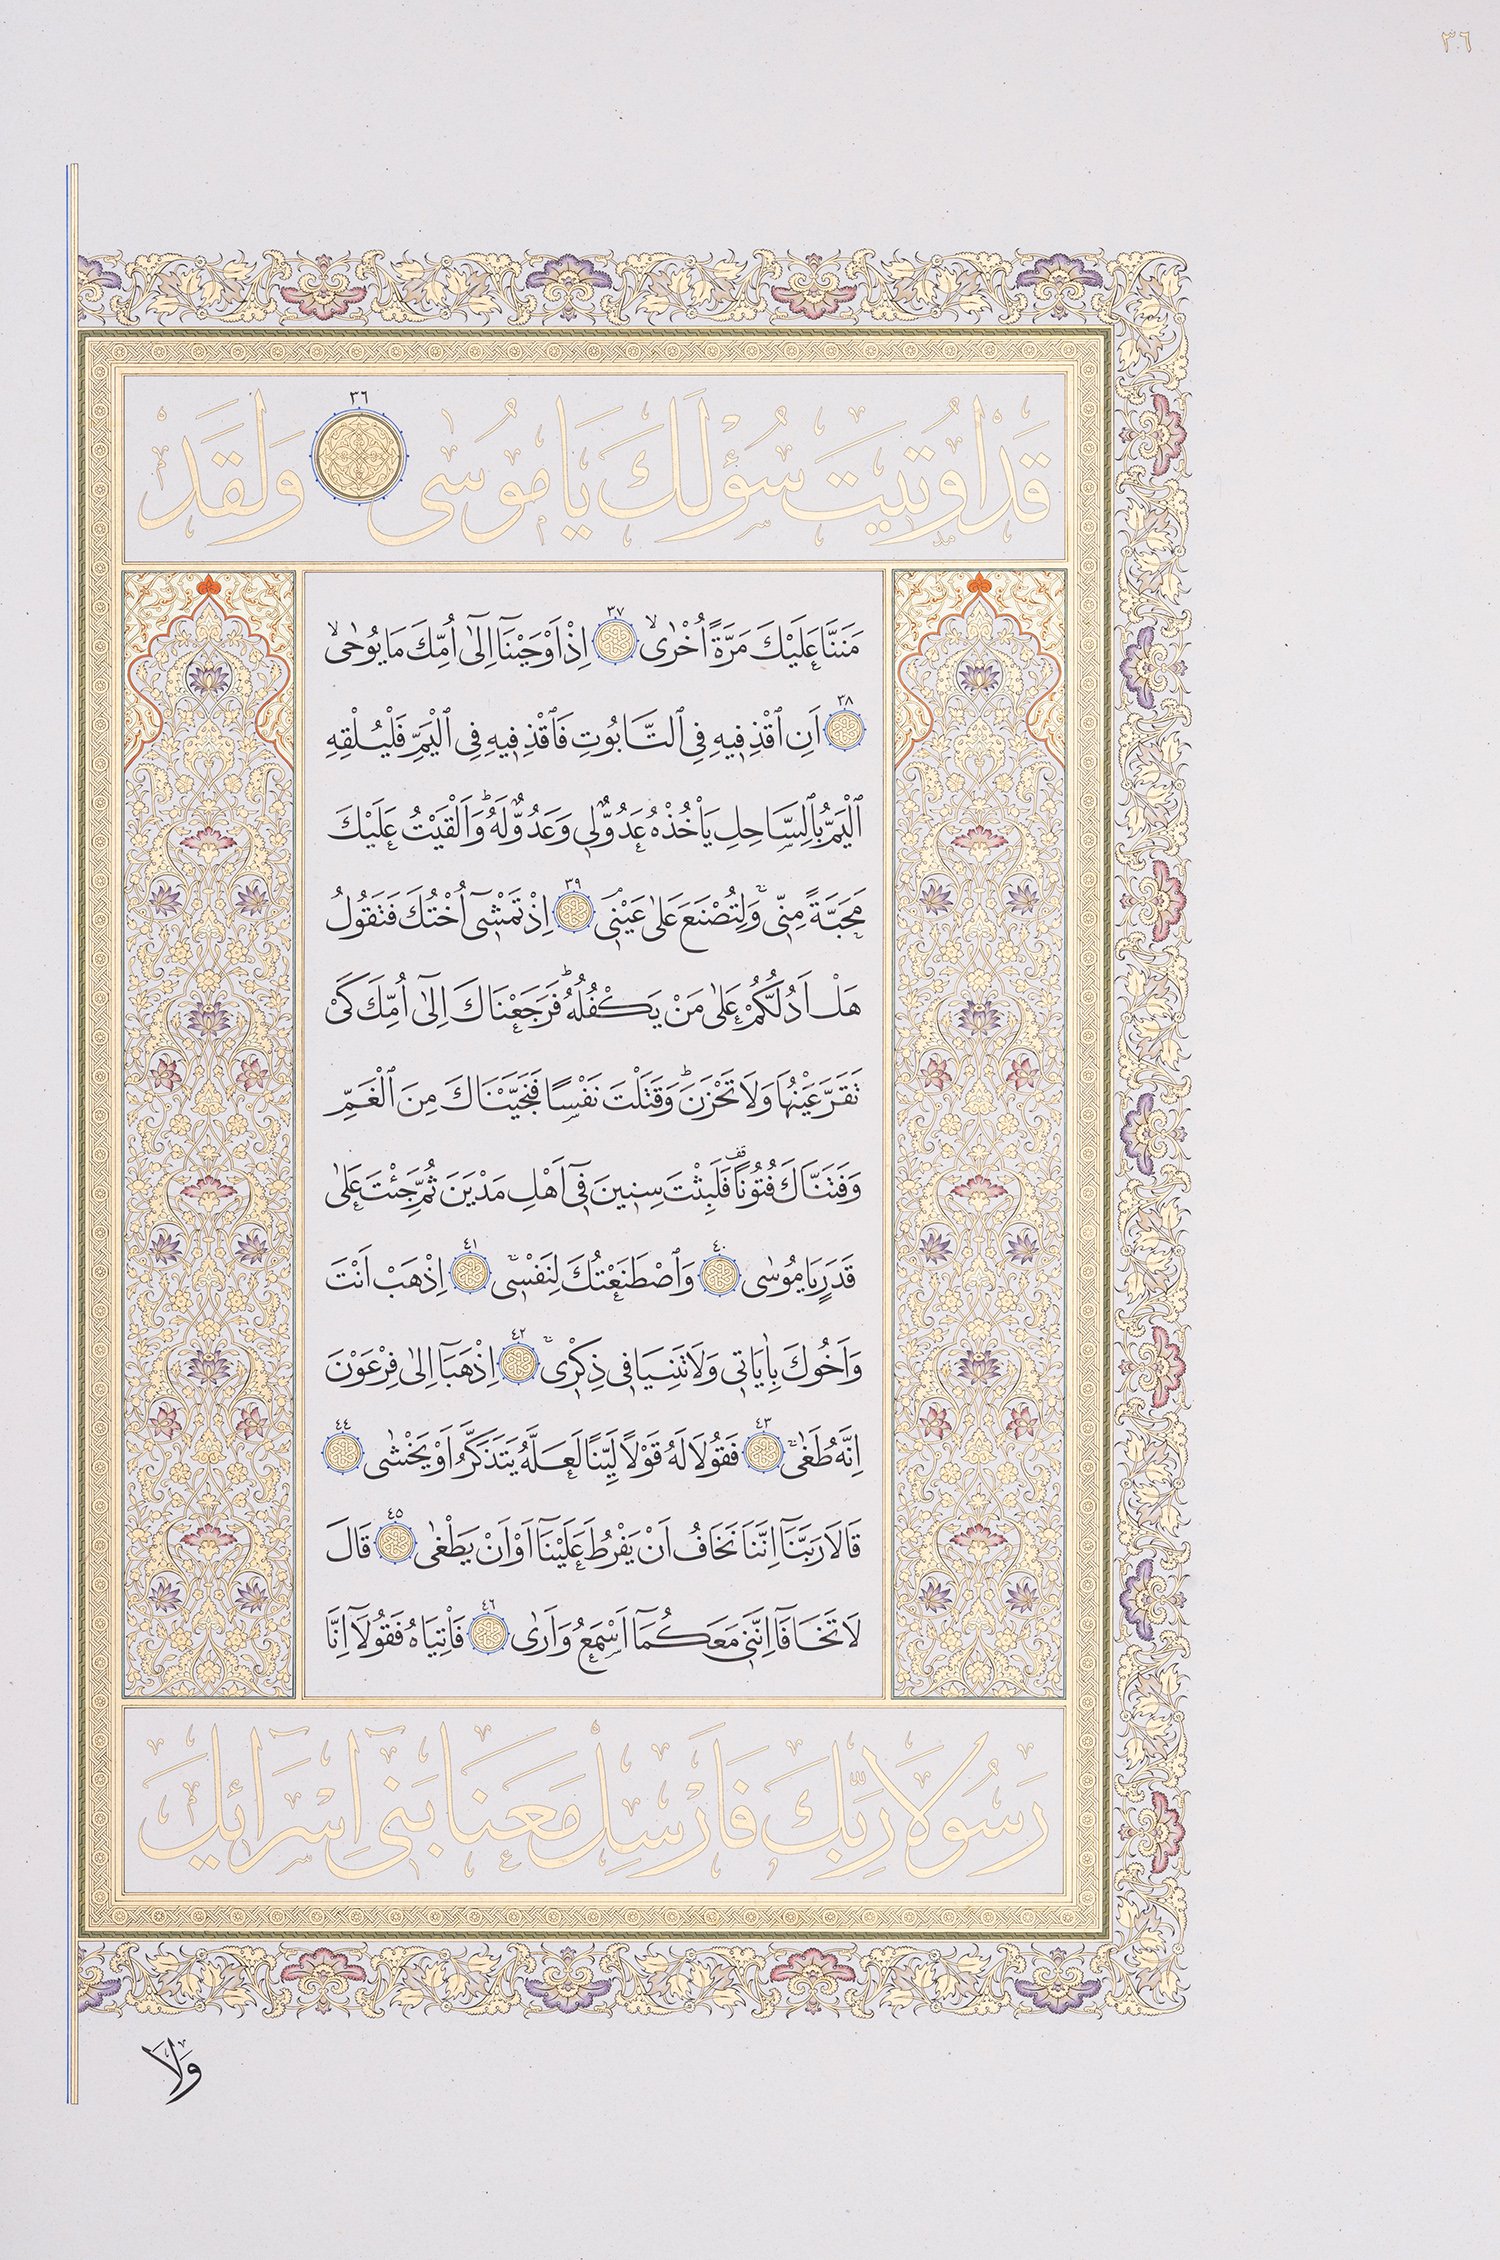 ٣٦
قَدْ اُو۫ت۪يتَ سُؤْلَكَ يَا مُوسٰى ٣٦ وَلَقَدْ
مَنَنَّا عَلَيْكَ مَرَّةً اُخْرٰىۙ ٣٧ اِذْ اَوْحَيْنَٓا اِلٰٓى اُمِّكَ مَا يُوحٰىۙ
٣٨ اَنِ ٱقْذِف۪يهِ فِي ٱلتَّابُوتِ فَٱقْذِف۪يهِ فِي ٱلْيَمِّ فَلْيُلْقِهِ
ٱلْيَمُّ بِٱلسَّاحِلِ يَأْخُذْهُ عَدُوٌّ ل۪ي وَعَدُوٌّ لَهُۜ وَاَلْقَيْتُ عَلَيْكَ
مَحَبَّةً مِنّ۪يۚ وَلِتُصْنَعَ عَلٰى عَيْن۪يۢ ٣٩ اِذْ تَمْش۪ٓي اُخْتُكَ فَتَقُولُ
هَلْ اَدُلُّكُمْ عَلٰى مَنْ يَكْفُلُهُۜ فَرَجَعْنَاكَ اِلٰٓى اُمِّكَ كَيْ
تَقَرَّ عَيْنُهَا وَلَا تَحْزَنَۜ وَقَتَلْتَ نَفْسًا فَنَجَّيْنَاكَ مِنَ ٱلْغَمِّ
وَفَتَنَّاكَ فُتُونًا۠ فَلَبِثْتَ سِن۪ينَ ف۪ٓي اَهْلِ مَدْيَنَ ثُمَّ جِئْتَ عَلٰى
قَدَرٍ يَا مُوسٰى ٤٠ وَٱصْطَنَعْتُكَ لِنَفْس۪يۚ ٤١ اِذْهَبْ اَنْتَ
وَاَخُوكَ بِاٰيَات۪ي وَلَا تَنِيَا ف۪ي ذِكْر۪يۚ ٤٢ اِذْهَبَٓا اِلٰى فِرْعَوْنَ
اِنَّهُ طَغٰىۚ ٤٣ فَقُولَا لَهُ قَوْلًا لَيِّنًا لَعَلَّهُ يَتَذَكَّرُ اَوْ يَخْشٰى ٤٤
قَالَا رَبَّنَٓا اِنَّنَا نَخَافُ اَنْ يَفْرُطَ عَلَيْنَٓا اَوْ اَنْ يَطْغٰى ٤٥ قَالَ
لَا تَخَافَٓا اِنَّن۪ي مَعَكُمَٓا اَسْمَعُ وَاَرٰى ٤٦ فَأْتِيَاهُ فَقُولَٓا اِنَّا
رَسُولَا رَبِّكَ فَاَرْسِلْ مَعَنَا بَن۪ٓي اِسْرَٓائ۪لَ
وَلَا